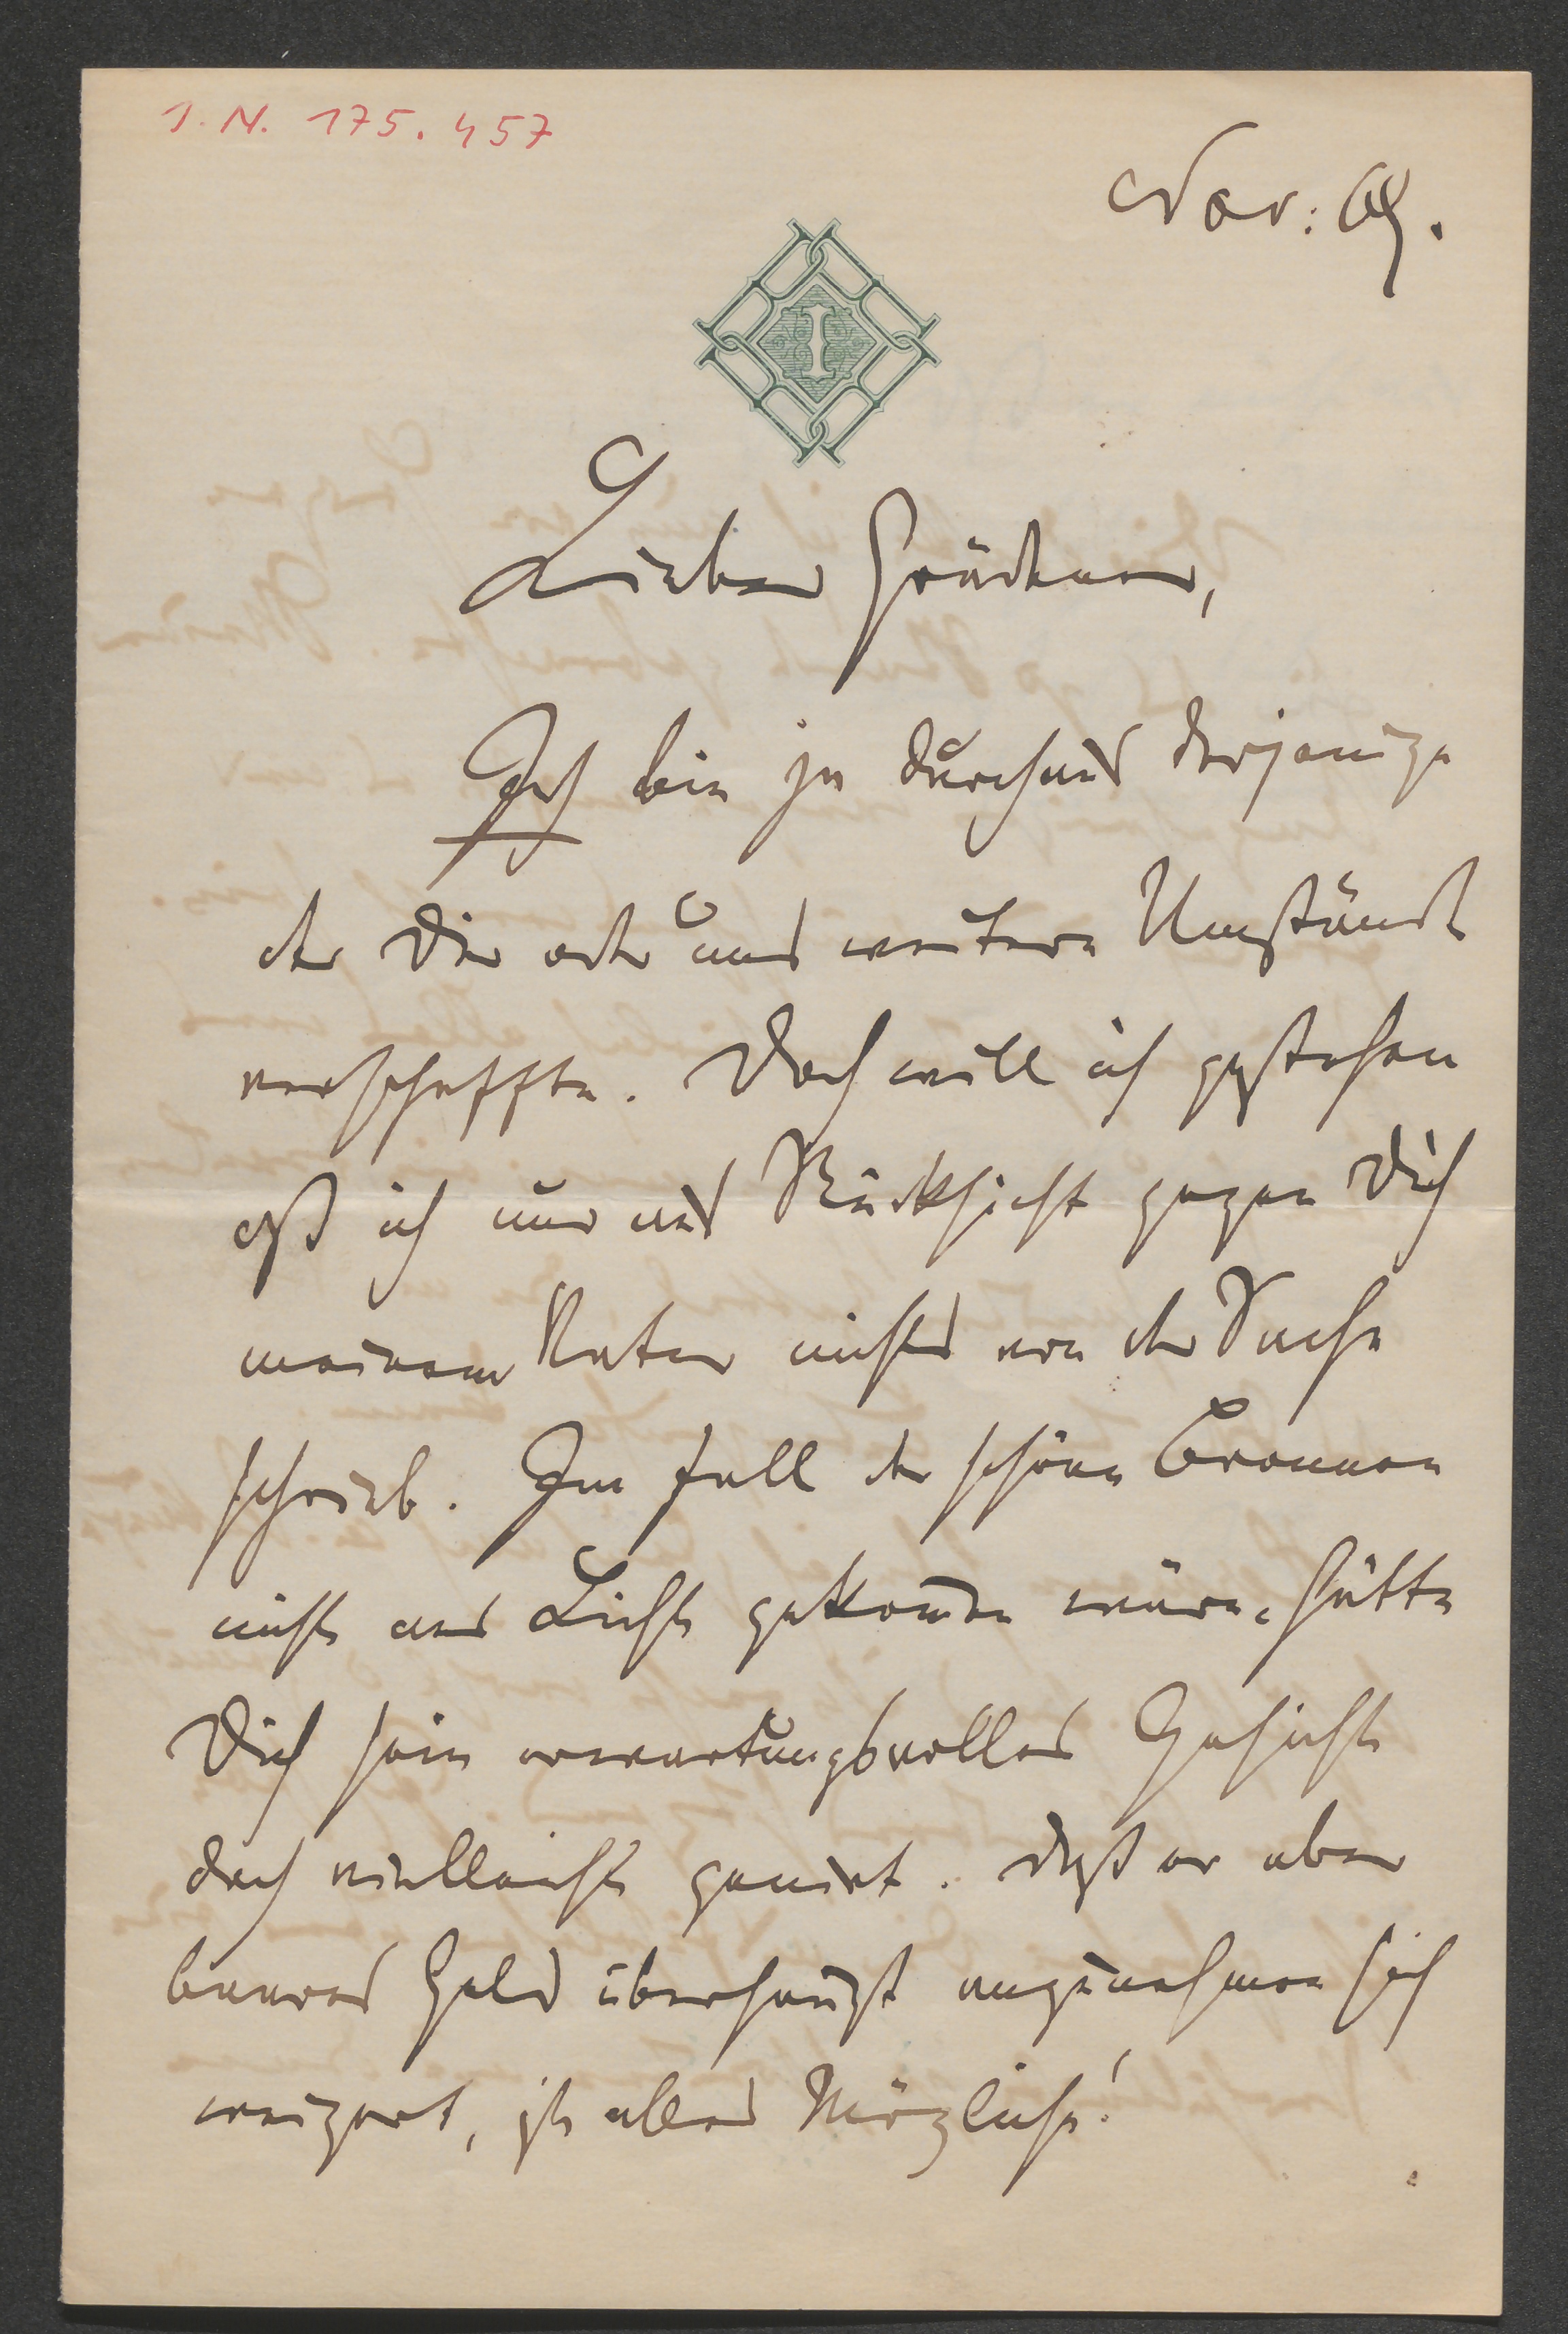 I. N. 175.457
Nov: 69.
I
Lieber Gräderer,
Ich bin ja durchaus derjenige
der Dir oder uns weitere Umstände
verschaffte. Doch will ich gestehen
daß ich nur aus Rücksicht gegen Dich
meinem Vater nichts von der Sache
schrieb. Im Fall der schöne Brunnen
nicht ans Licht gekommen wäre, hätte
Dich sein erwartungsvolles Gesicht
doch vielleicht genirt. Daß er aber
baares Geld überhaupt anzunehmen sich
weigert, ist alles Mögliche!